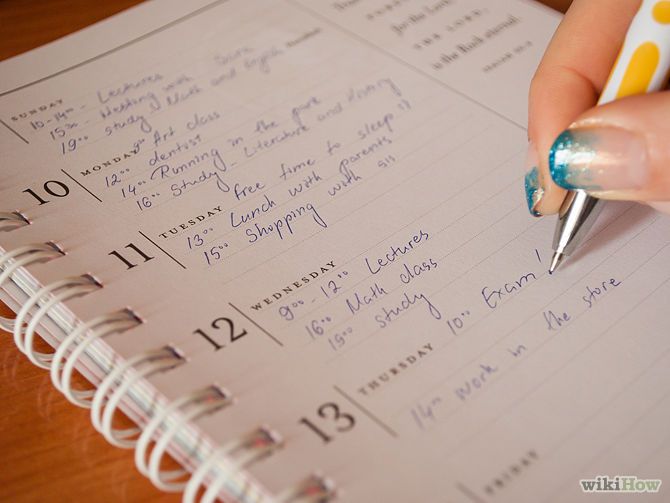 for the Lord
THE LORD,
is the Rock eternal.
ISAIAH 26:4
SUNDAY
10-14⁰⁰ - Lectures
15³⁰ - Meeting with Sara
19⁰⁰ study Math and English
MONDAY 9⁰⁰ Art class
12⁰⁰ dentist
14⁰⁰ Running in the park
16⁰⁰ Study - Literature and History
10
TUESDAY free time to sleep!!
13⁰⁰ Lunch with parents
15⁰⁰ Shopping with sis
11
WEDNESDAY
9⁰⁰ - 12⁰⁰ Lectures
16⁰⁰ Math class
19⁰⁰ study
12
THURSDAY 10⁰⁰ Exam!
14⁰⁰ work in the store
13
FRIDAY
wikiHow